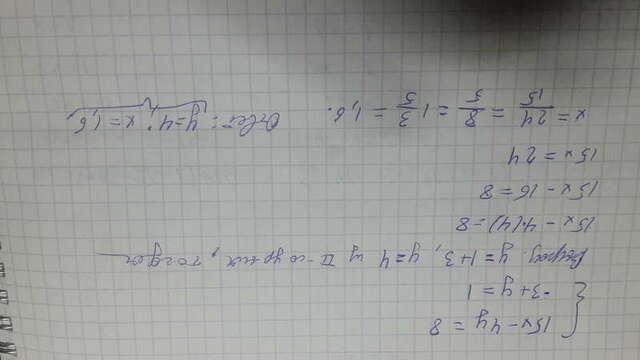 { 15x - 4y = 8
-3 + y = 1
Выраз. y = 1+3, y = 4 из II-го ур-ния, тогда
15x - 4·(4) = 8
15x - 16 = 8
15x = 24
x = 24/15 = 8/5 = 1 3/5 = 1,6. Ответ: y=4; x=1,6.